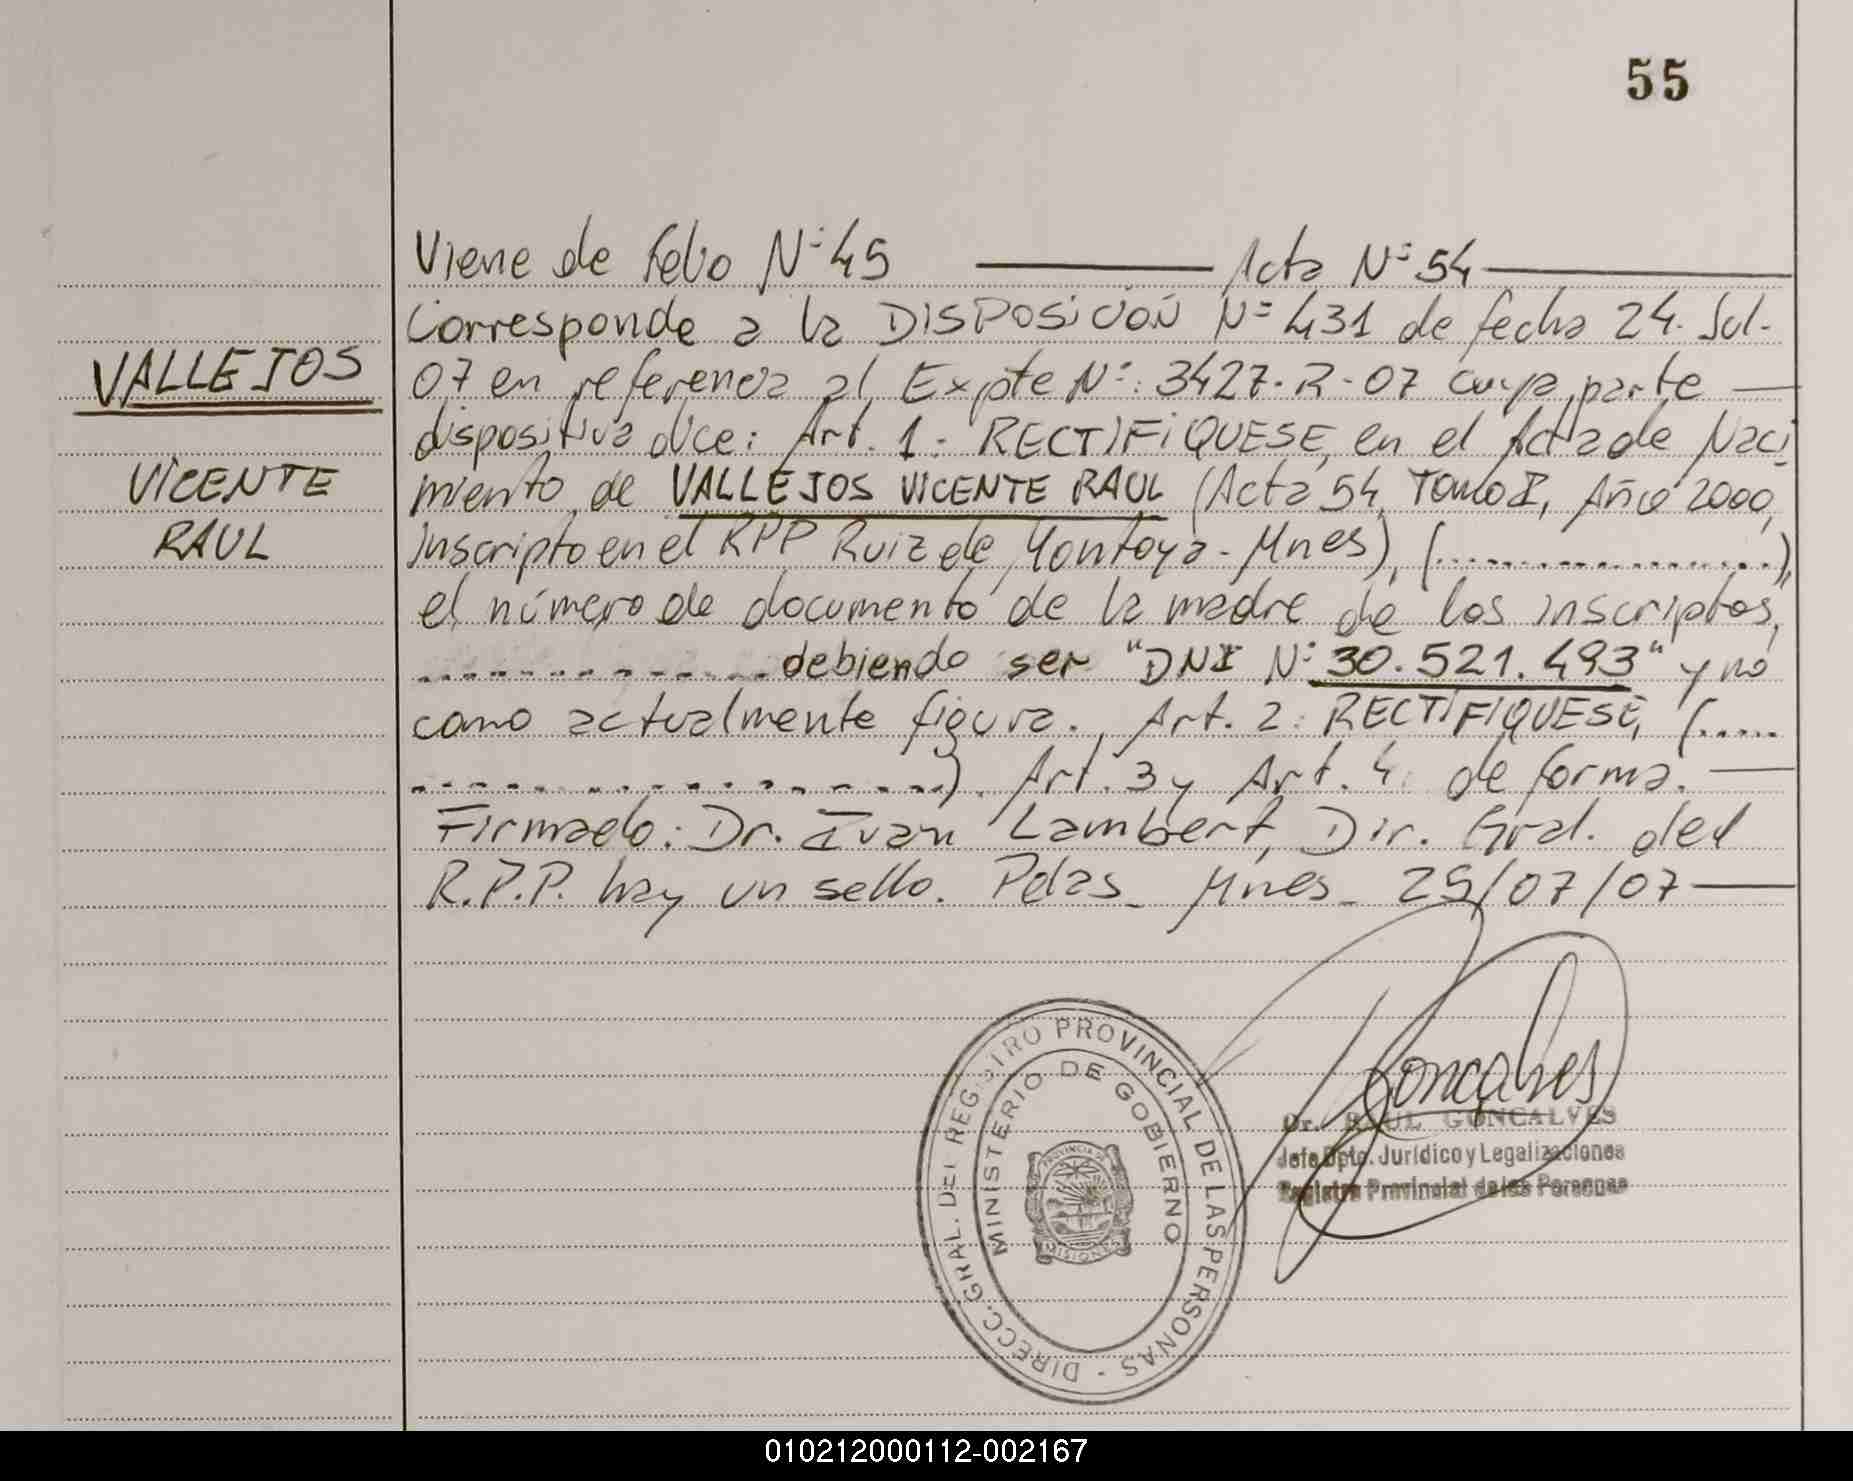 55
Viene de folio Nº 45 Acta Nº 54
Corresponde a la DISPOSICIÓN Nº 431 de fecha 24. Jul-
VALLEJOS
07 en referencia al Expte Nº: 3427-R-07 cuya parte
dispositiva dice: Art. 1: RECTIFIQUESE, en el Acta de Naci
VICENTE
miento de VALLEJOS VICENTE RAUL (Acta 54, Tomo I, Año 2000,
RAUL
Inscripto en el RPP Ruiz de Montoya - Mnes), (...................),
el número de documento de la madre de los inscriptos,
................... debiendo ser "DNI Nº 30.521.493" y no
como actualmente figura., Art. 2: RECTIFIQUESE, (......
...................). Art. 3 y Art. 4: de forma.
Firmado: Dr. Ivan Lambert, Dir. Gral. del
R.P.P. hay un sello. Pdas - Mnes - 25/07/07
DIRECC. GRAL. DEL REGISTRO PROVINCIAL DE LAS PERSONAS -
MINISTERIO DE GOBIERNO
PROVINCIA DE
MISIONES
Goncalves
Dr. RAUL GONCALVES
Jefe Dpto. Jurídico y Legalizaciones
Registro Provincial de las Personas
010212000112-002167